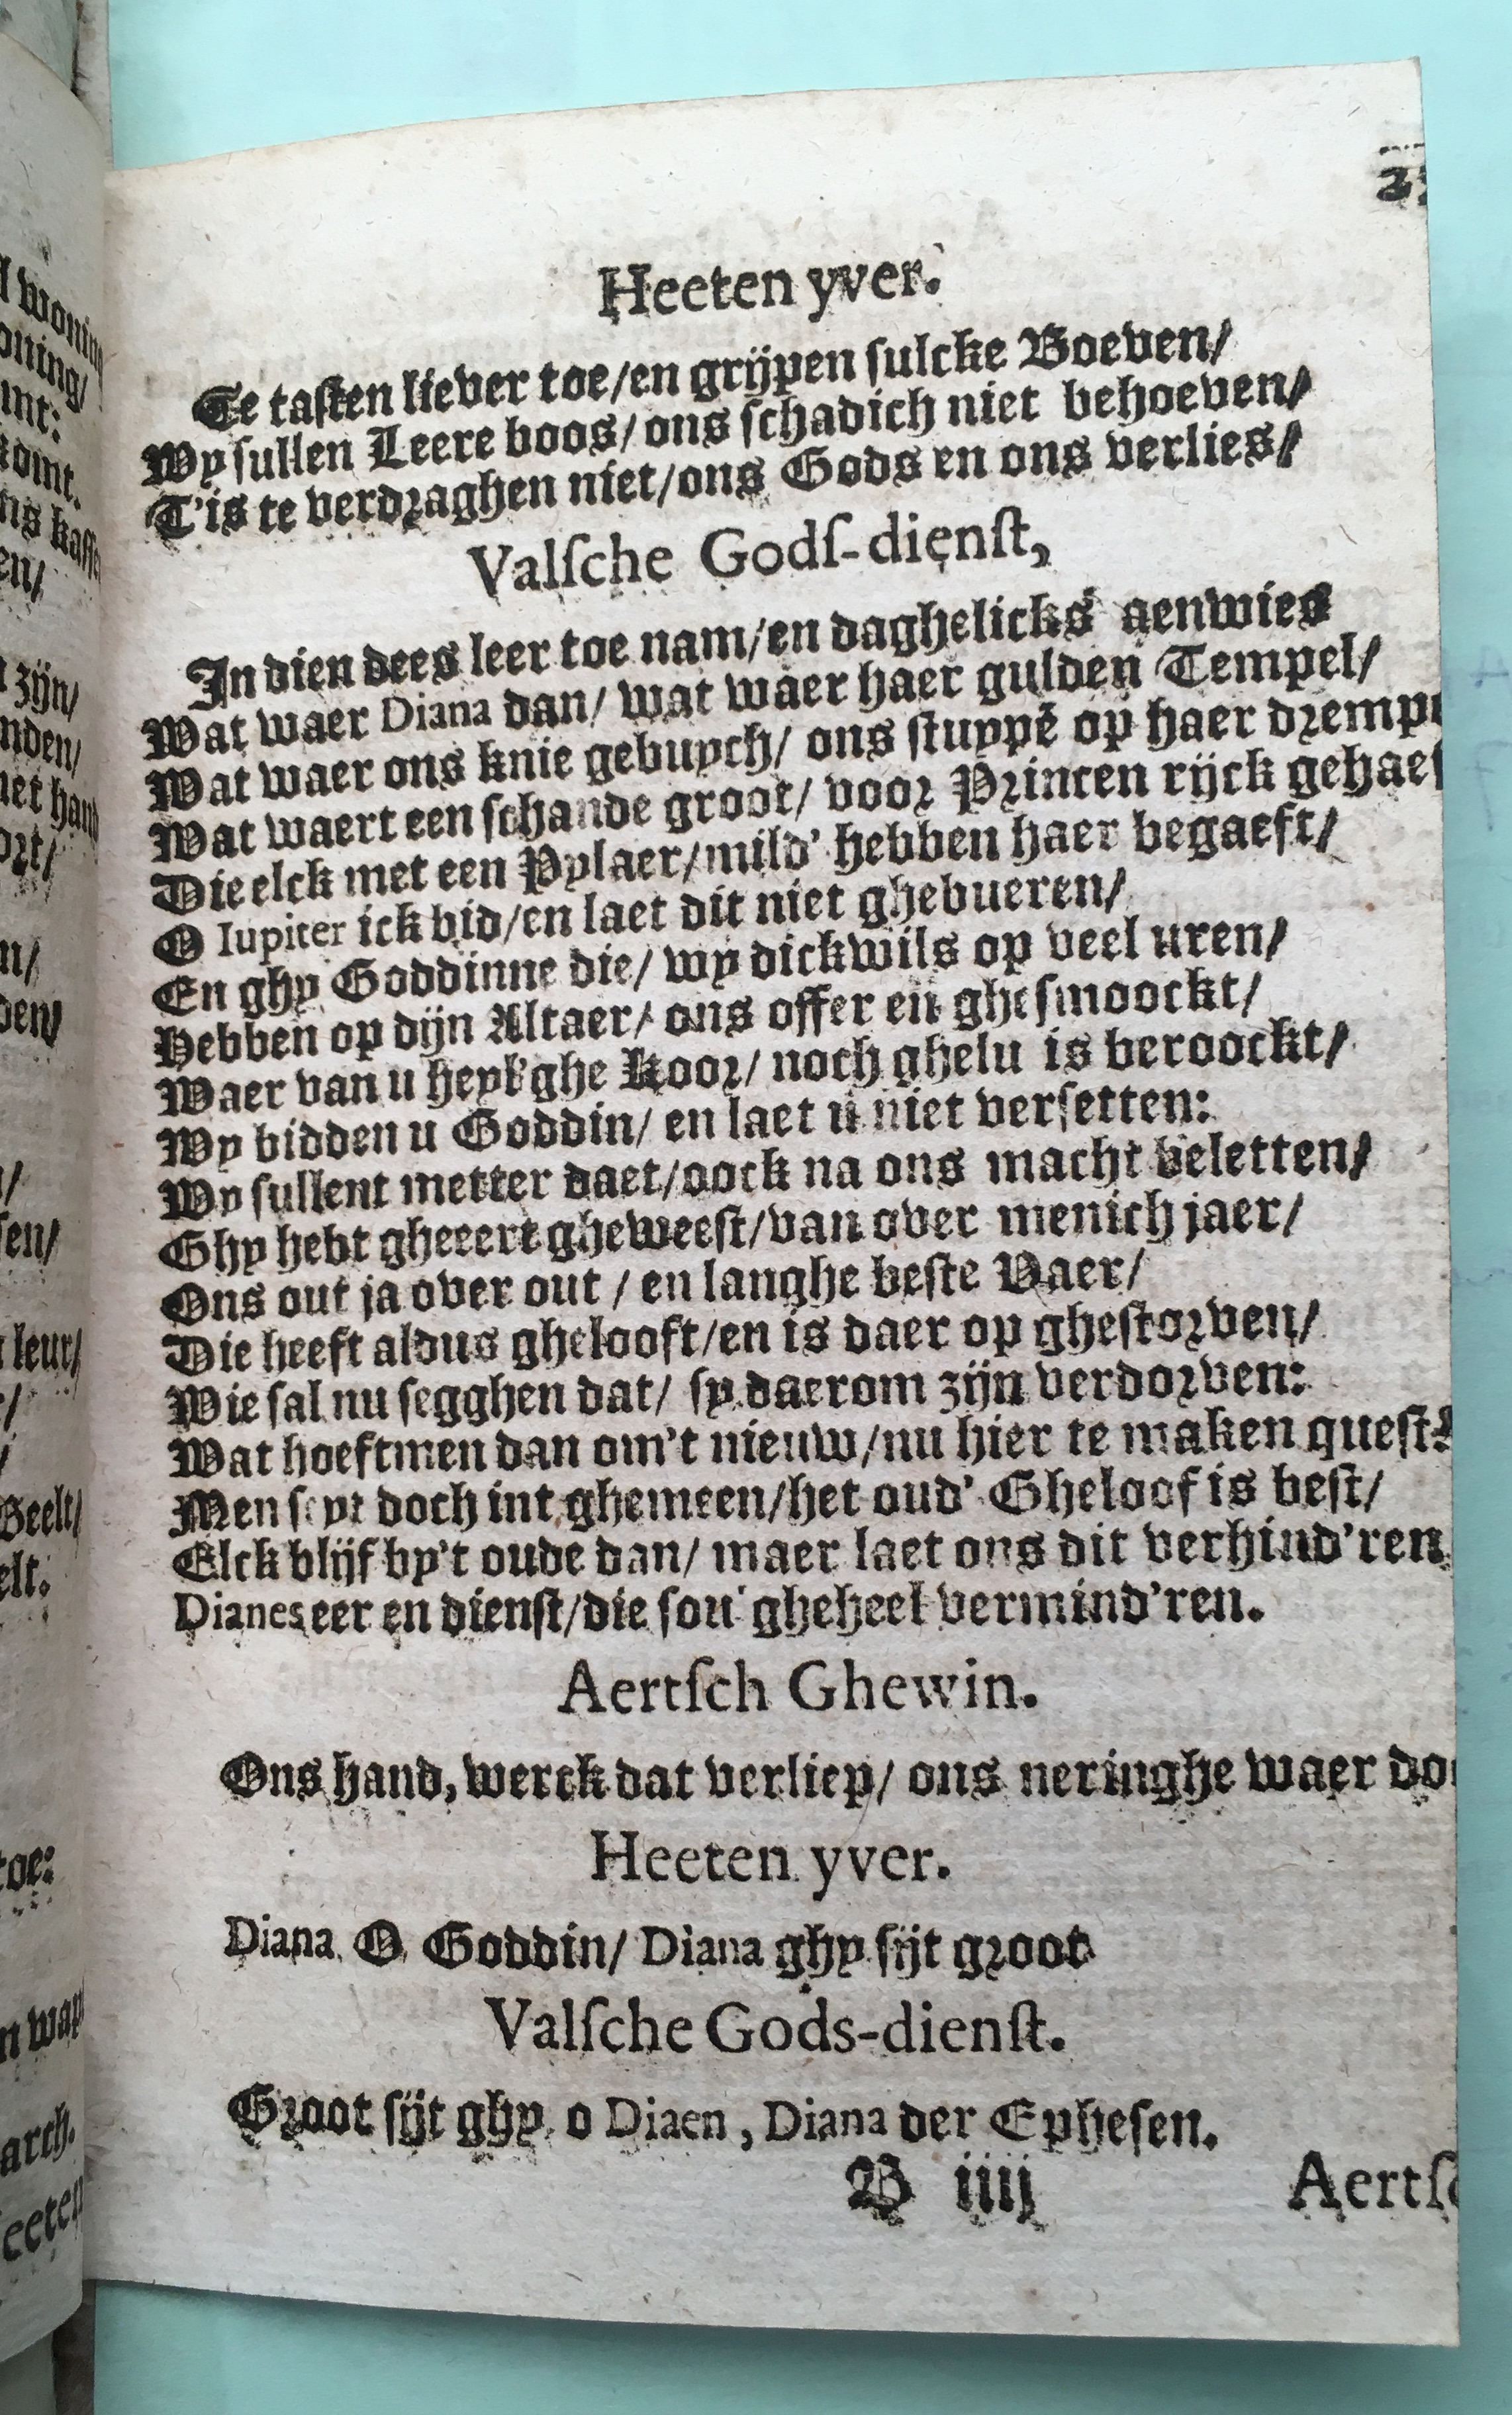 Heeten yver.
Te tasten liever toe/en grijpen sulcke Boeven/
Wy sullen Leere boos/ons schadich niet behoeven/
T'is te verdraghen niet/ons Gods en ons verlies/
Valsche Gods-dienst,
In dien dees leer toe nam/en daghelicks aenwies
Wat waer Diana dan/ wat waer haer gulden Tempel/
Wat waer ons knie gebuych/ ons stuypẽ op haer
Wat waert een schande groot/ voor Princen rijck
Die elck met een Pylaer/mild' hebben haer begaeft/
O Iupiter ick bid/en laet dit niet ghebueren/
En ghy Goddinne die/ wy dickwils op veel uren/
Hebben op dijn Altaer/ ons offer en ghesmoockt/
Waer van u heyl'ghe Koor/ noch ghelu is beroockt/
Wy bidden u Goddin/ en laet u niet versetten:
Wy sullent metter daet/oock na ons macht beletten/
Ghy hebt gheeert gheweest/van over menich jaer/
Ons out ja over out / en langhe beste Vaer/
Die heeft aldus ghelooft/en is daer op ghestorven/
Wie sal nu segghen dat/ sy daerom zijn verdorven:
Wat hoeftmen dan om't nieuw/nu hier te maken quest?
Men seyt doch int ghemeen/het oud' Gheloof is best/
Elck blijf by't oude dan/ maer laet ons dit verhind'ren
Dianes eer en dienst/die sou gheheel vermind'ren.
Aertsch Ghewin.
Ons hand, werck dat verliep/ ons neringhe waer
Heeten yver.
Diana O Goddin/ Diana ghy sijt groot
Valsche Gods-dienst.
Groot sijt ghy o Diaen, Diana der Ephesen.
B iiij